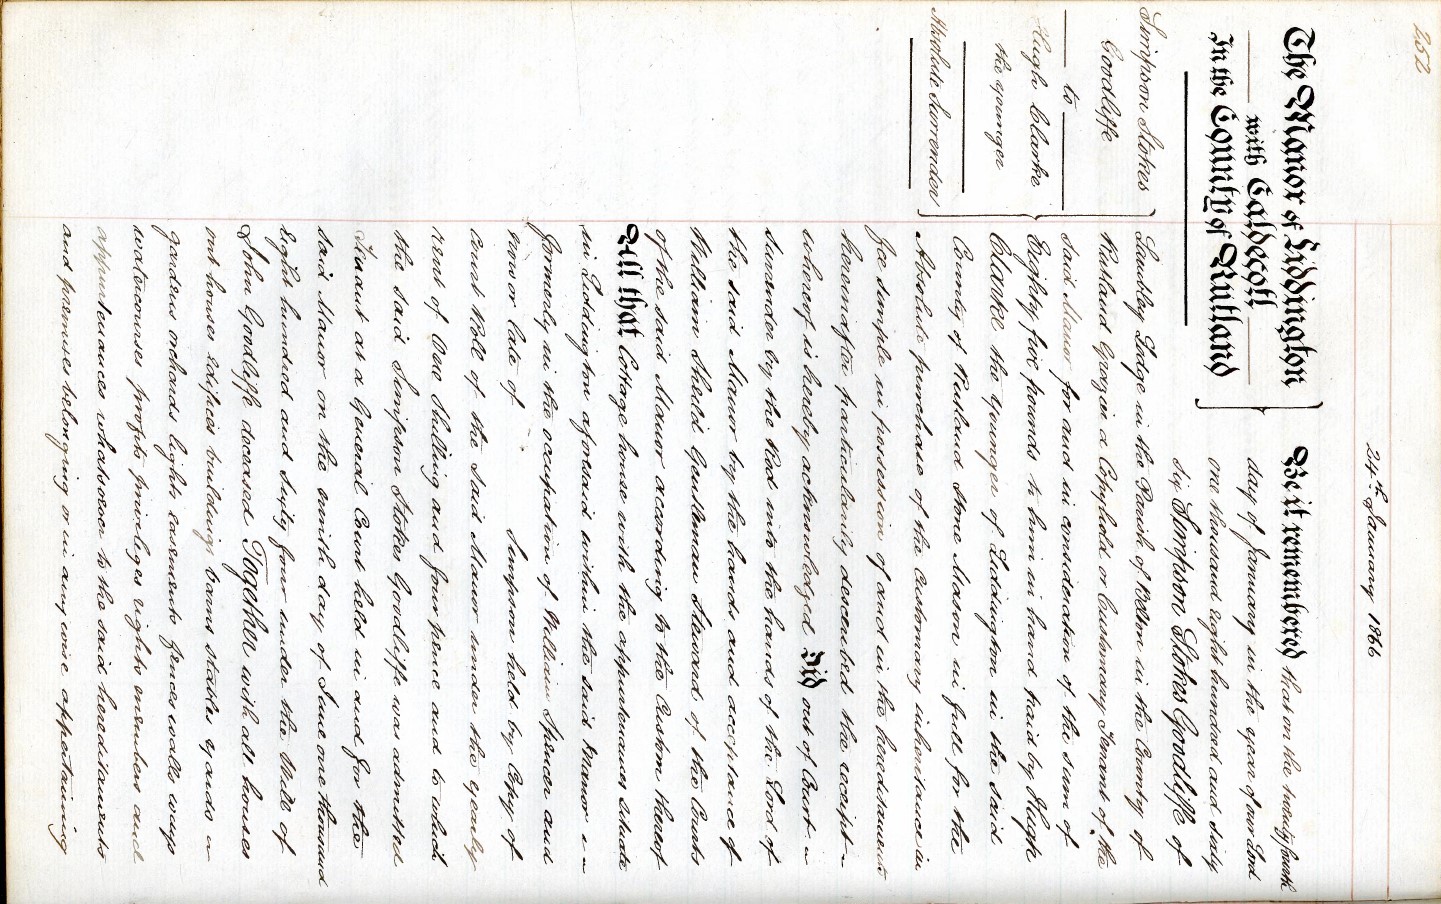 252
24th January 1866
The Manor of Liddington
with Caldecott
In the County of Rutland
Simpson Stokes
Goodliffe
to
Hugh Clarke
the younger
Absolute Surrender
Be it remembered that on the twenty fourth
day of January in the year of our Lord
one thousand eight hundred and sixty
six Simpson Stokes Goodliffe of
Lambley Lodge in the Parish of Belton in the County of
Rutland Grazier a Copyhold or Customary Tenant of the
said Manor for and in consideration of the sum of
Eighty five pounds to him in hand paid by Hugh
Clarke the younger of Liddington in the said
County of Rutland Stone Mason in full for the
Absolute purchase of the customary inheritance in
fee simple in possession of and in the hereditaments
hereinafter particularly described the receipt
whereof is hereby acknowledged Did out of Court
surrender by the Rod into the hands of the Lord of
the said Manor by the hands and acceptance of
William Sheild Gentleman Steward of the Courts
of the said Manor according to the Custom thereof
All that Cottage house with the appurtenances situate
in Liddington aforesaid within the said Manor
formerly in the occupation of William Spence and
now or late of Simpson held by Copy of
Court Roll of the said Manor under the yearly
rent of One shilling and four pence and to which
the said Simpson Stokes Goodliffe was admitted
Tenant at a General Court held in and for the
said Manor on the ninth day of June one thousand
eight hundred and sixty four under the Will of
John Goodliffe deceased Together with all houses
out houses edifices buildings barns stables yards
gardens orchards lights easements fences walls ways
watercourses profits privileges rights members and
appurtenances whatsoever to the said hereditaments
and premises belonging or in any wise appertaining